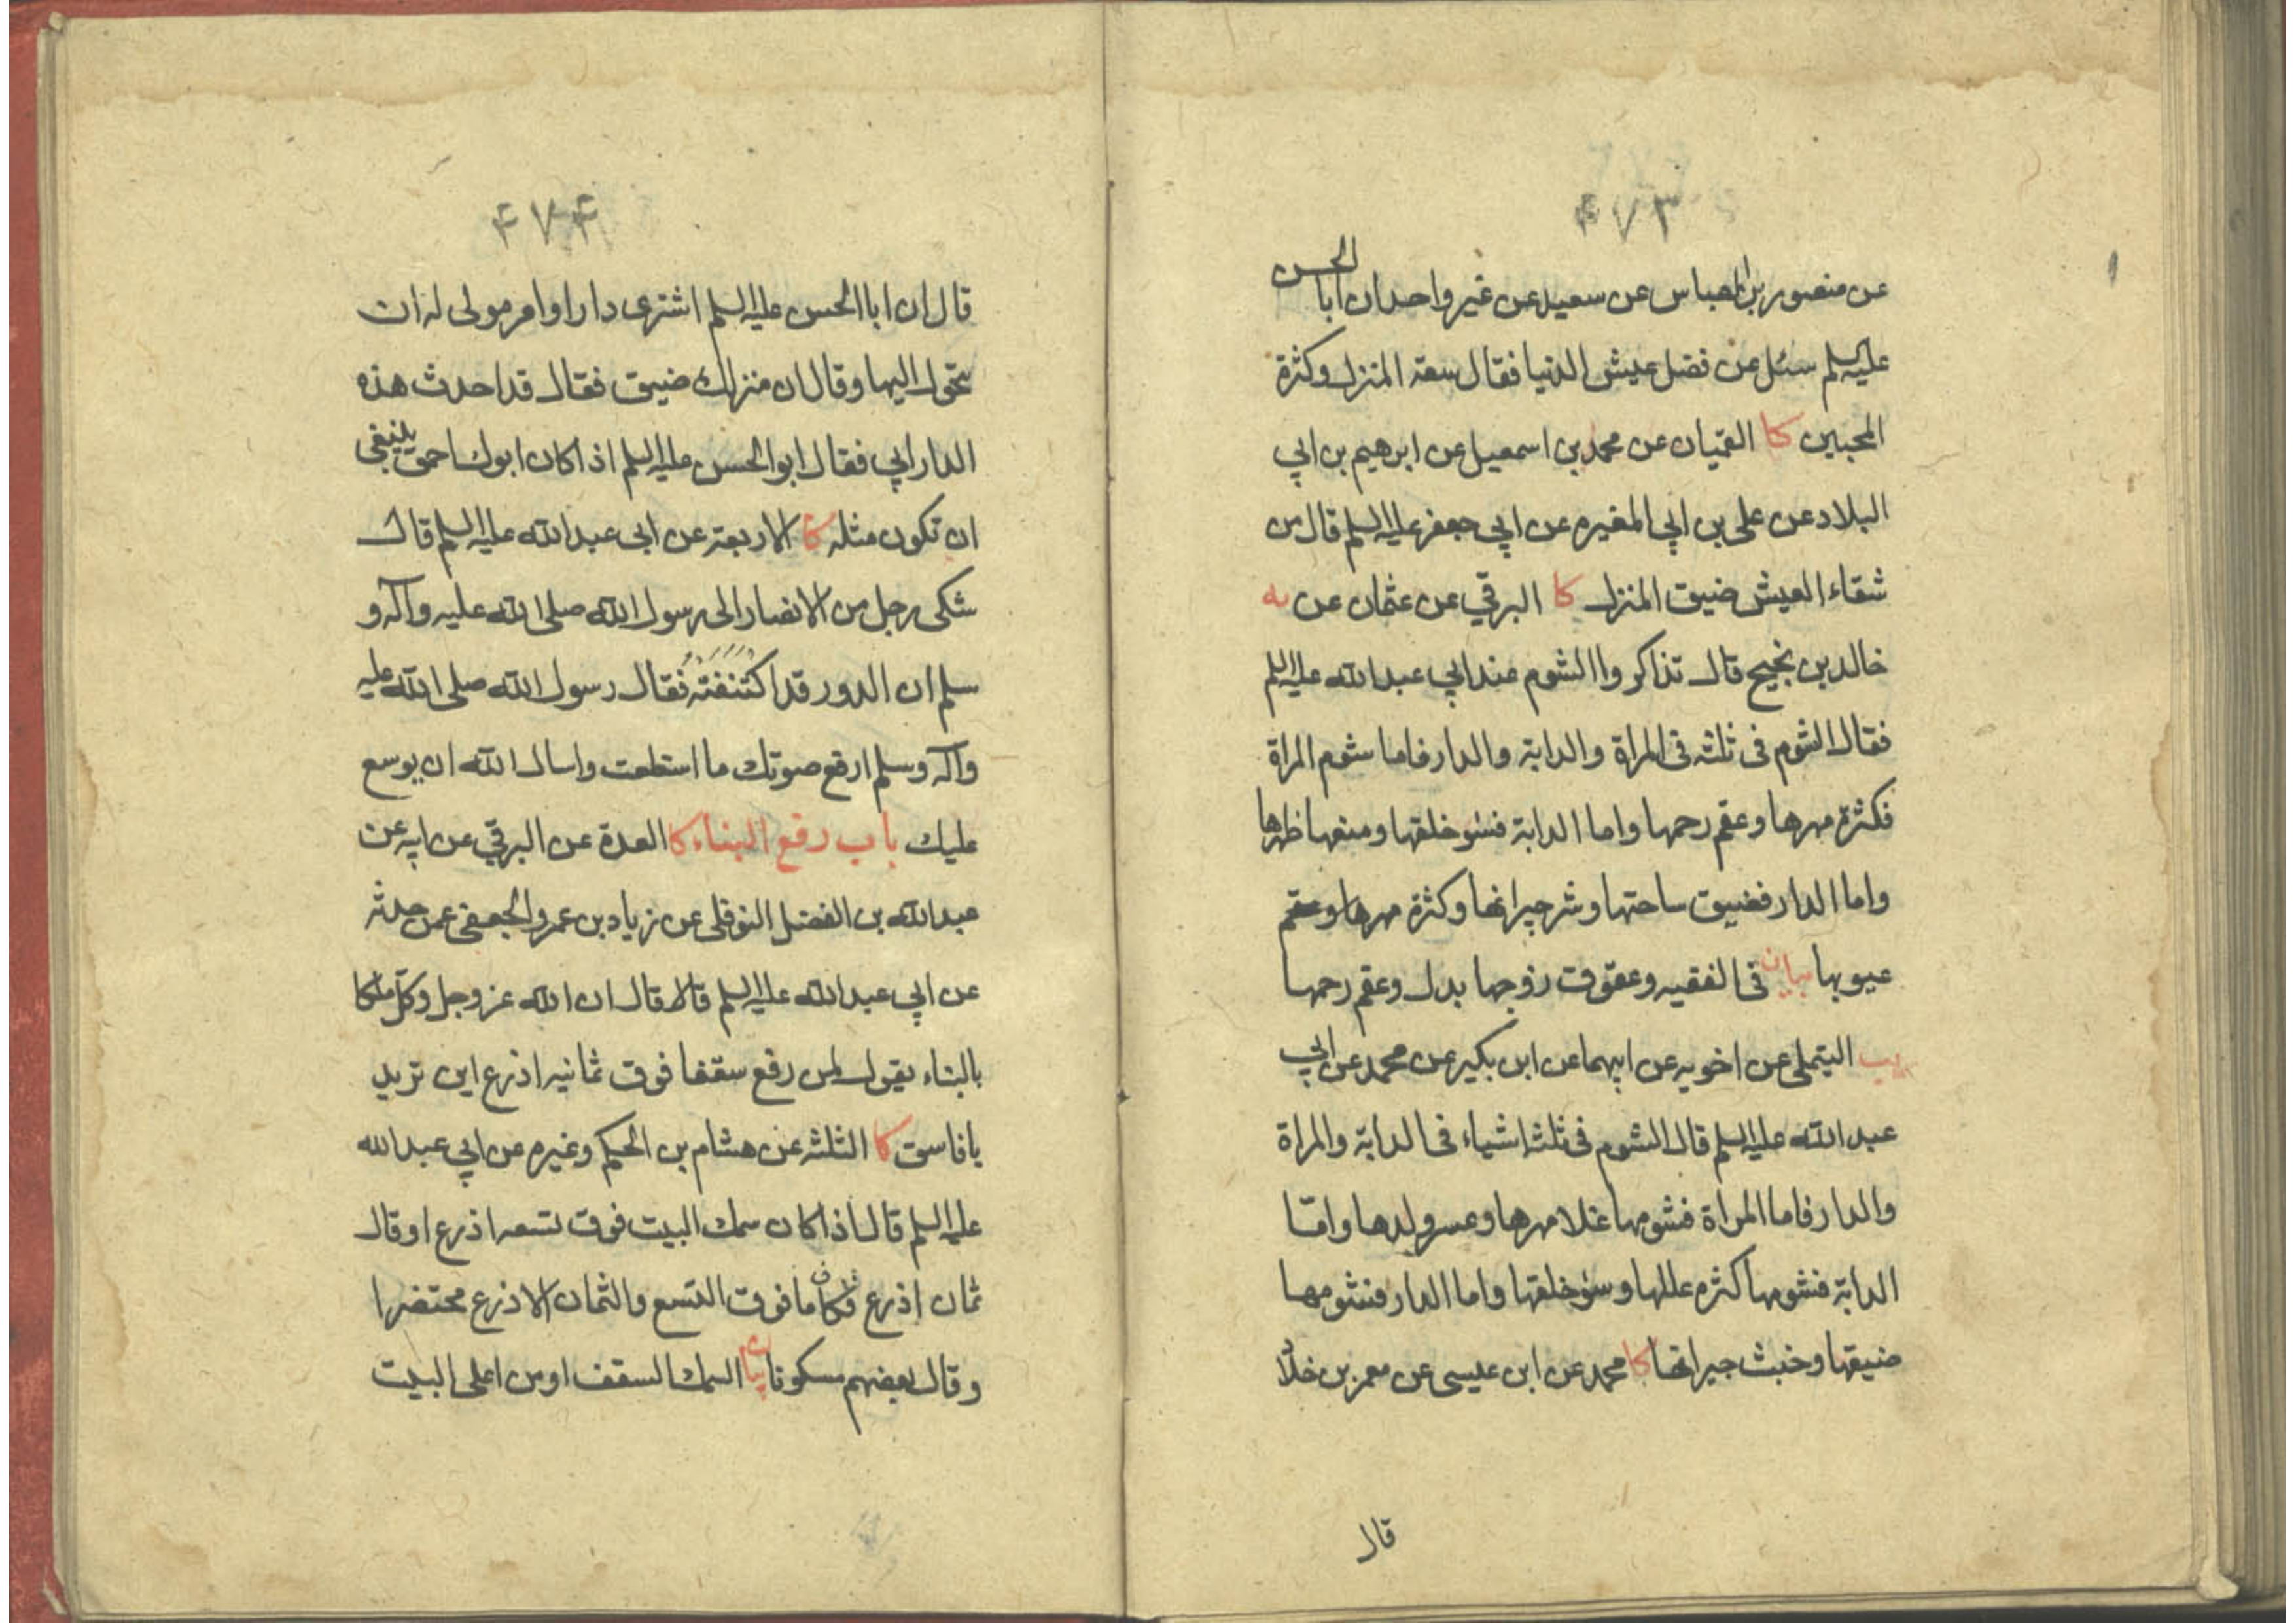 ۴۷۳
عن منصور بن العباس عن سعيد عن غير واحد ان ابا الحسن
عليه السلم سئل عن فضل عيش الدنيا فقال سعة المنزل وكثرة
المحبين كا القميان عن محمد بن اسمعيل عن ابرهيم بن ابي
البلاد عن على بن ابي المغيره عن ابي جعفر عليه السلم قال من
شقاء العيش ضيق المنزل كا البرقي عن عثمان عن يه
خالد بن نجيح قال تذاكروا الشوم عند ابي عبد الله عليه السلم
فقال الشوم فى ثلثه فى المراة والدابة والدار فاما شوم المراة
فكثرة مهرها وعقم رحمها واما الدابة فسوء خلقها ومنعها ظهرها
واما الدار فضيق ساحتها وشر جيرانها وكثرة مهرها وعقم
عيوبها بيان فى الفقيه وعقوق زوجها بدل وعقم رحمها
يب التيملى عن اخويه عن ابيهما عن ابن بكير عن محمد عن ابي
عبد الله عليه السلم قال الشوم فى ثلثة اشياء فى الدابة والمراة
والدار فاما المراة فشومها غلا مهرها وعسر ولدها وامّا
الدابة فشومها كثره عللها وسوء خلقها واما الدار فشومها
ضيقها وخبث جيرانها كا محمد عن ابن عيسى عن معمر بن خلاد
قال
۴۷۴
قال ان ابا الحسن عليه السلم اشترى دارا وامر مولى له ان
يتحول اليها وقال ان منزلك ضيق فقال قد احدث هذه
الدار ابي فقال ابو الحسن عليه السلم اذا كان ابوك احمق ينبغى
ان تكون مثله كا الاربعة عن ابى عبد الله عليه السلم قال
شكى رجل من الانصار الى رسول الله صلى الله عليه وآله و
سلم ان الدور قد اكتنفته فقال رسول الله صلى الله عليه
وآله وسلم ارفع صوتك ما استطعت واسال الله ان يوسع
عليك باب رفع البناء كا العدة عن البرقي عن ابيه عن
عبد الله بن الفضل النوفلى عن زياد بن عمرو الجعفى عمن حدثه
عن ابي عبد الله عليه السلم قالا قال ان الله عز وجل وكّل ملكا
بالبناء يقول لمن رفع سقفا فوق ثمانيه اذرع اين تريد
يا فاسق كا الثلثه عن هشام بن الحكم وغيره عن ابي عبد الله
عليه السلم قال اذا كان سمك البيت فوق تسعه اذرع او قال
ثمان اذرع فكان ما فوق التسع والثمان الاذرع محتضرا
وقال بعضهم مسكونا بيان السمك السقف او من اعلى البيت